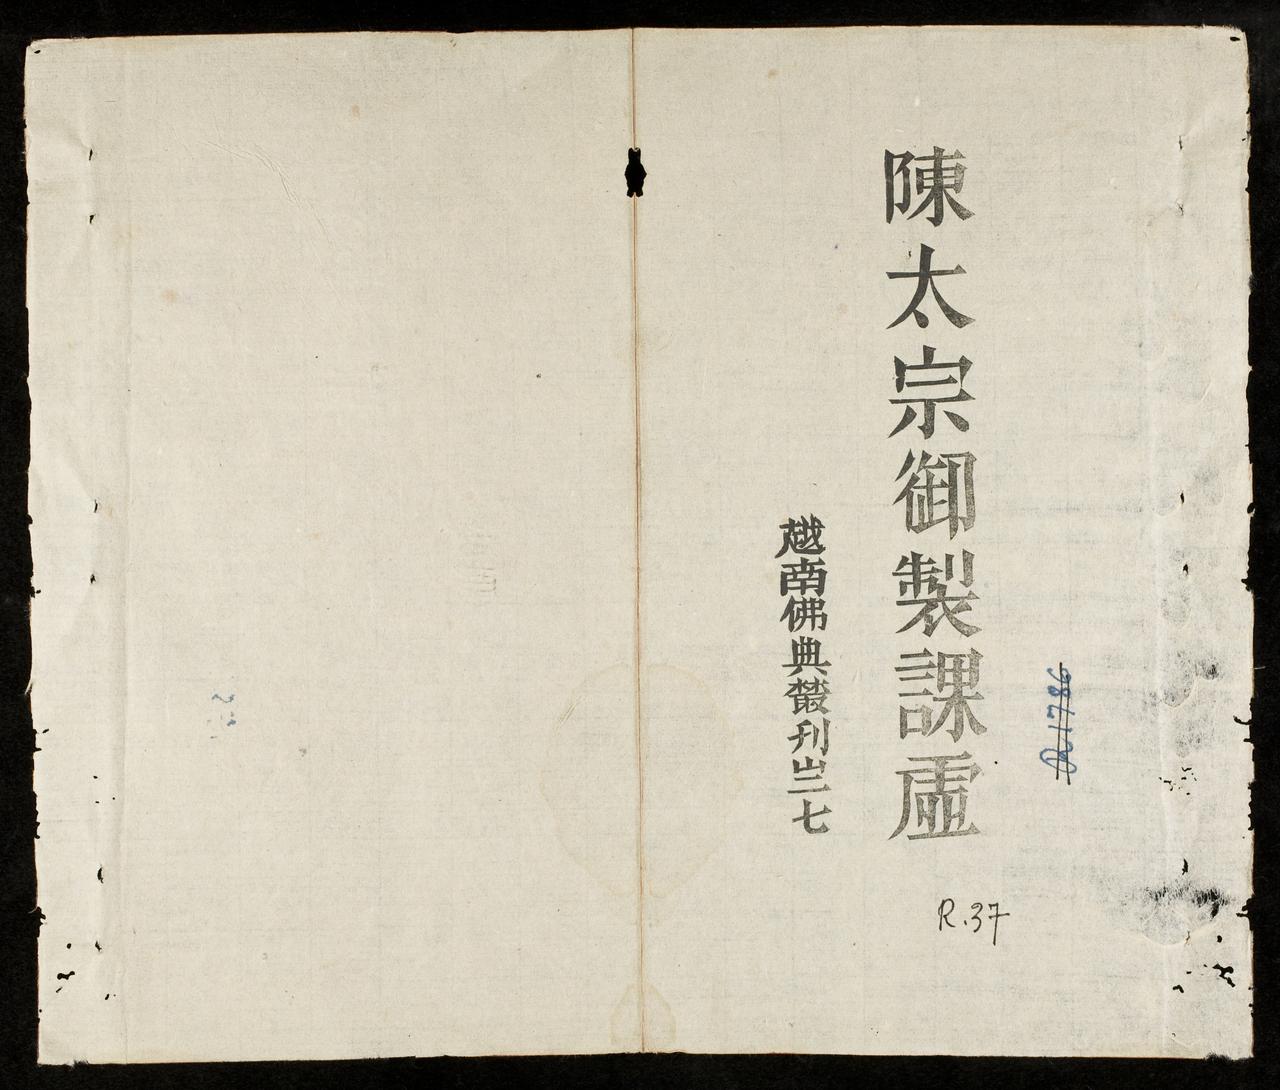 陳太宗御製課虛
越南佛典叢刊之七
R.1786
R.37